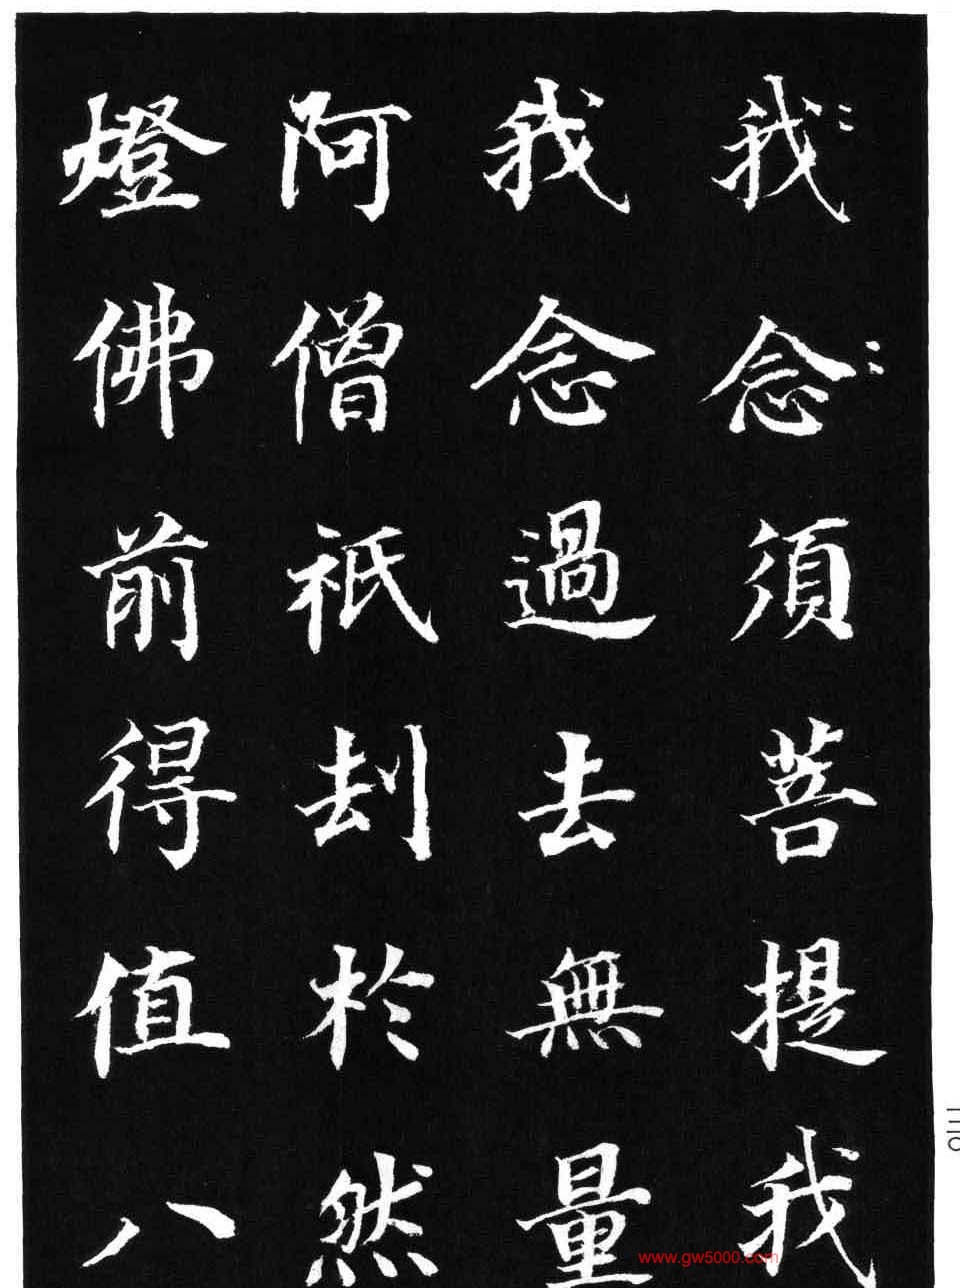 我念須菩提我
我念過去無量
阿僧祇刦於然
燈佛前得值八
www.gw5000.com